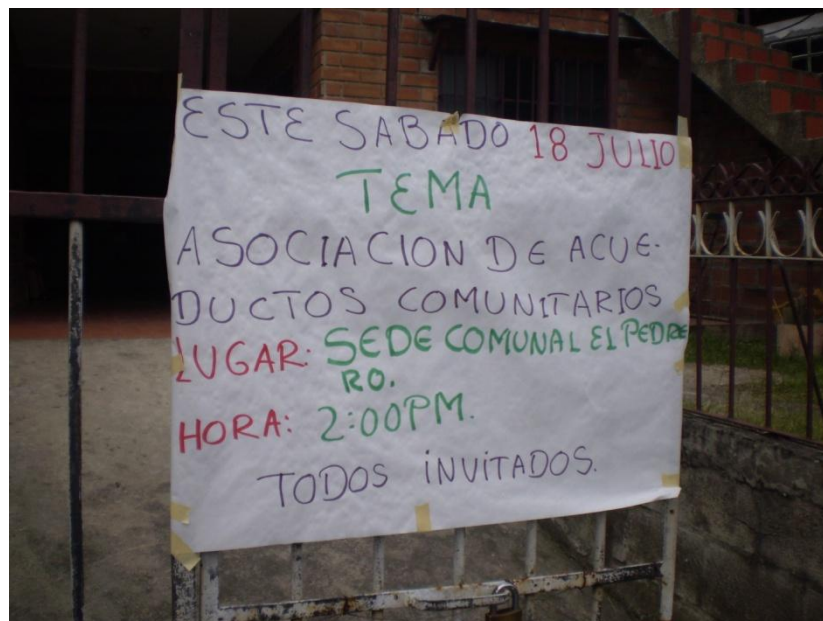 ESTE SABADO 18 JULIO
TEMA
ASOCIACION DE ACUE-
DUCTOS COMUNITARIOS
LUGAR: SEDE COMUNAL EL PEDRE
RO.
HORA: 2:00PM.
TODOS iNViTADOS.